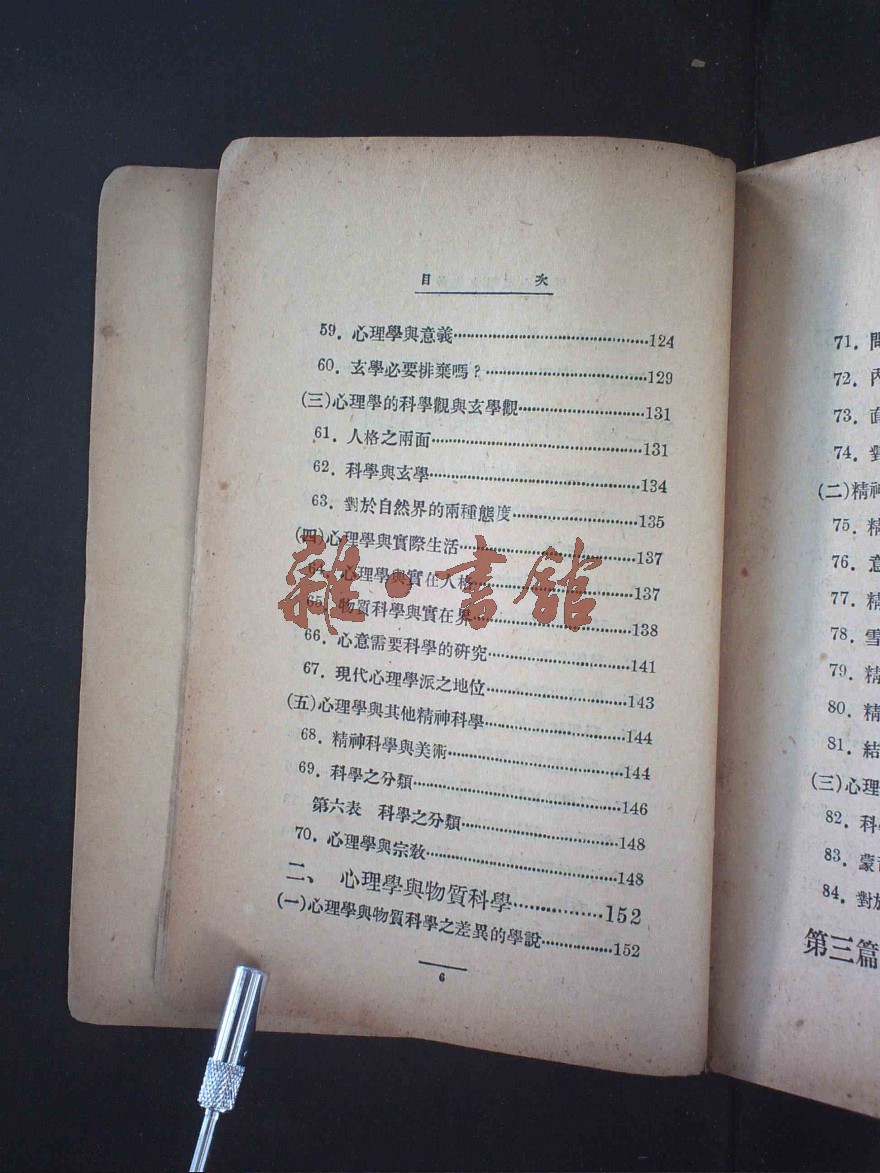 目次
59．心理學與意義……124
60．玄學必要排棄嗎？……129
(三)心理學的科學觀與玄學觀……131
61．人格之兩面……131
62．科學與玄學……134
63．對於自然界的兩種態度……135
(四)心理學與實際生活……137
64．心理學與實在人格……137
65．物質科學與實在界……138
66．心意需要科學的研究……141
67．現代心理學派之地位……143
(五)心理學與其他精神科學……144
68．精神科學與美術……144
69．科學之分類……146
第六表　科學之分類……148
70．心理學與宗教……148
二、心理學與物質科學……152
(一)心理學與物質科學之差異的學說……152
6
雜·書舘
71．
72．
73．
74．
(二)精神
75．精
76．意
77．精
78．
79．精
80．精
81．結
(三)心理
82．科學
83．蒙
84．對於
第三篇